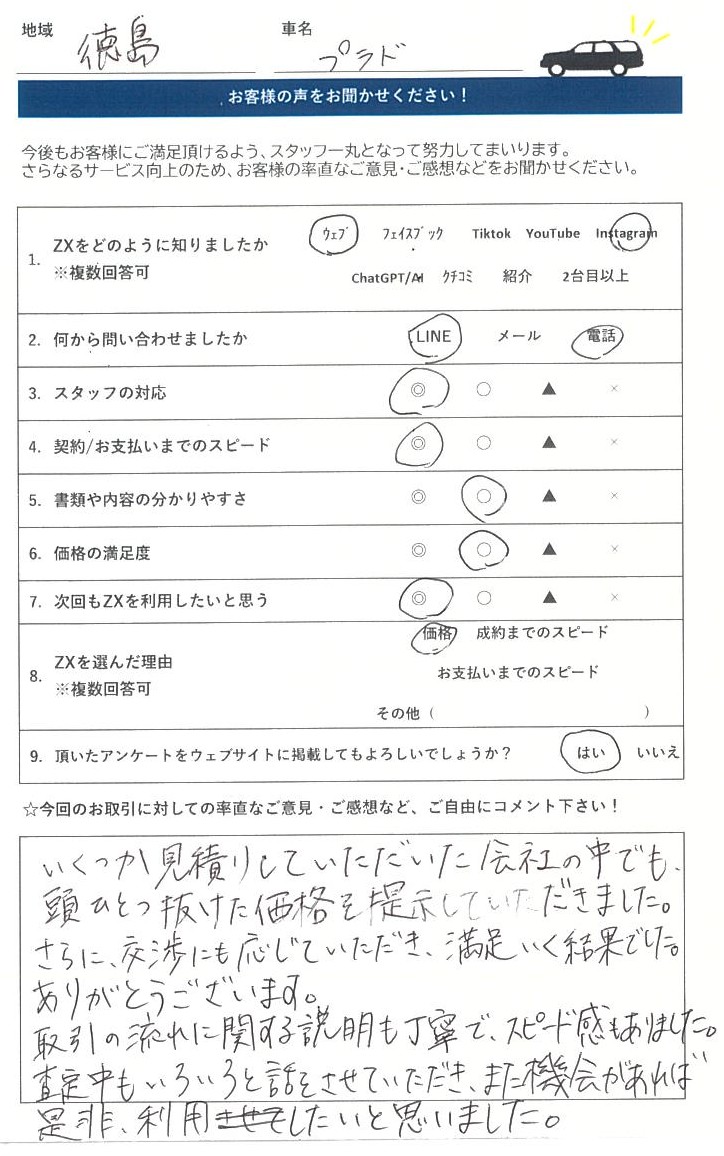 地域 徳島 車名 プラド
お客様の声をお聞かせください！
今後もお客様にご満足頂けるよう、スタッフ一丸となって努力してまいります。
さらなるサービス向上のため、お客様の率直なご意見・ご感想などをお聞かせください。
1. ZXをどのように知りましたか
※複数回答可
ウェブ フェイスブック Tiktok YouTube Instagram
ChatGPT/AI クチコミ 紹介 2台目以上
2. 何から問い合わせましたか LINE メール 電話
3. スタッフの対応 ◎ ○ ▲ ×
4. 契約/お支払いまでのスピード ◎ ○ ▲ ×
5. 書類や内容の分かりやすさ ◎ ○ ▲ ×
6. 価格の満足度 ◎ ○ ▲ ×
7. 次回もZXを利用したいと思う ◎ ○ ▲ ×
8. ZXを選んだ理由
※複数回答可
価格 成約までのスピード
お支払いまでのスピード
その他（ ）
9. 頂いたアンケートをウェブサイトに掲載してもよろしいでしょうか？ はい いいえ
☆今回のお取引に対しての率直なご意見・ご感想など、ご自由にコメント下さい！
いくつか見積りしていただいた会社の中でも、
頭ひとつ抜けた価格を提示していただきました。
さらに、交渉にも応じていただき、満足いく結果でした。
ありがとうございます。
取引の流れに関する説明も丁寧で、スピード感もありました。
査定中もいろいろと話をさせていただき、また機会があれば
是非、利用させてしたいと思いました。